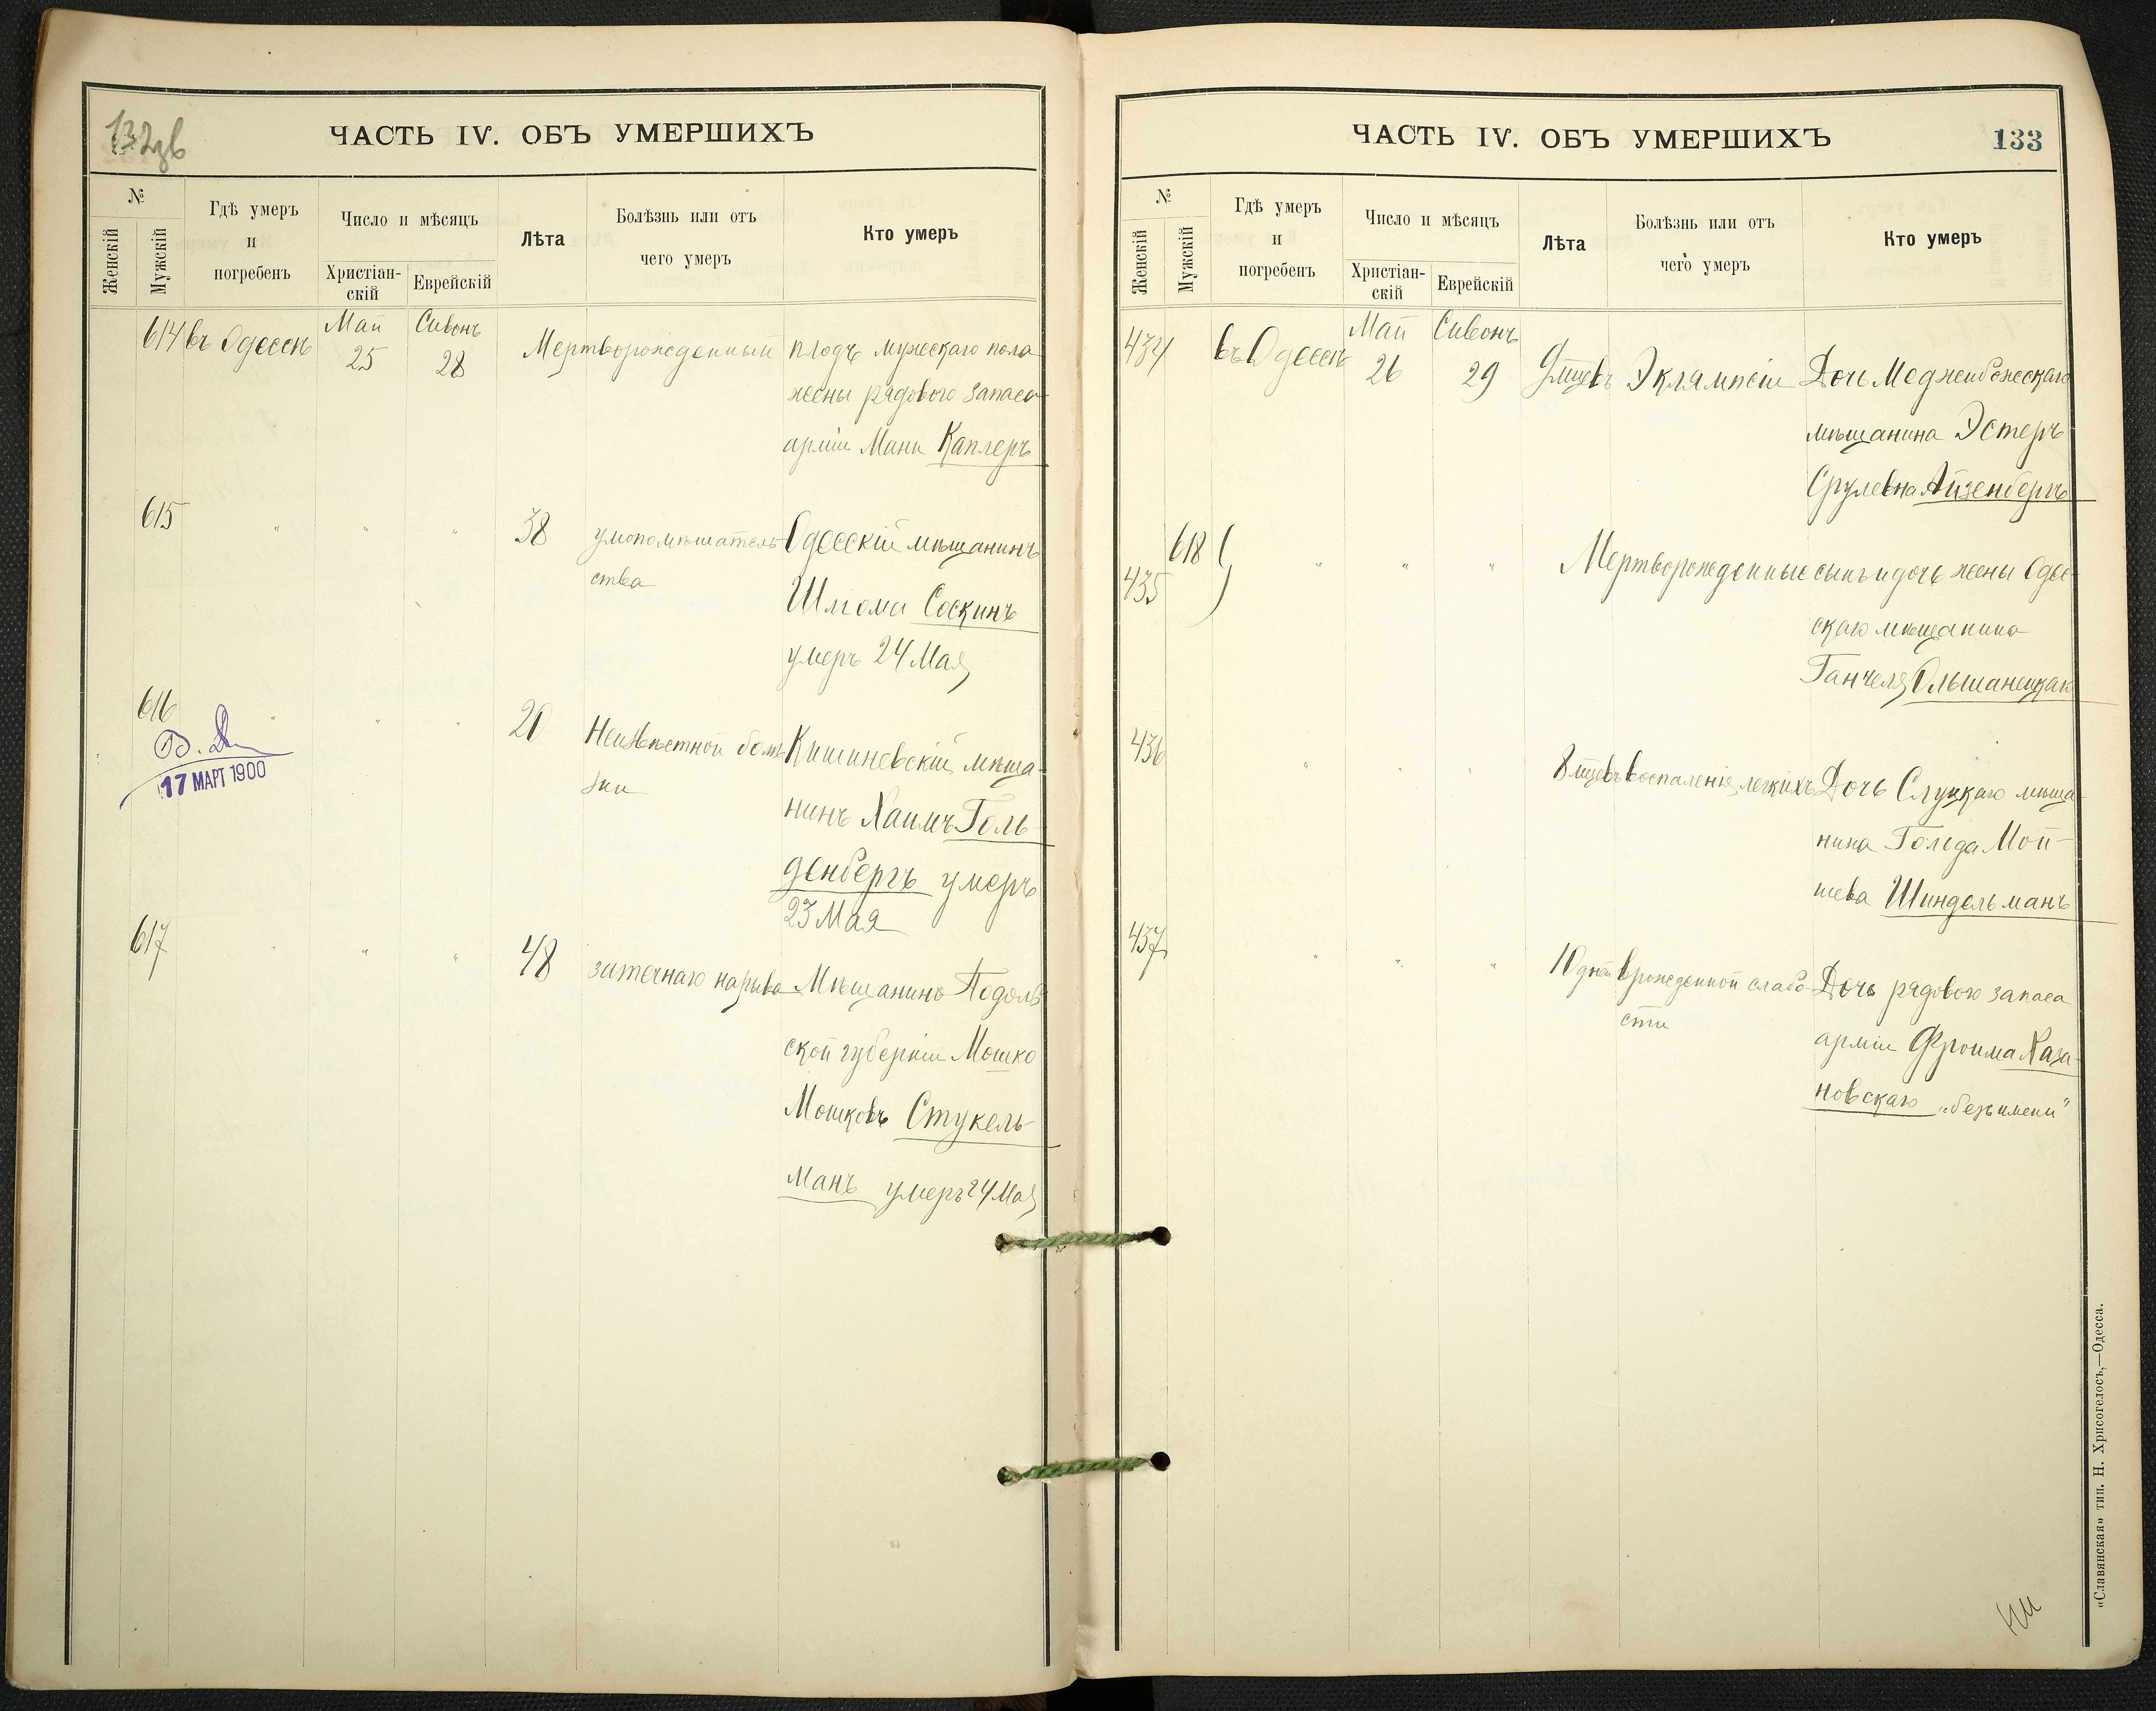 132 зв
ЧАСТЬ IV. ОБЪ УМЕРШИХЪ
№
Женскій
Мужскій
Гдѣ умеръ
и
погребенъ
Число и мѣсяцъ
Христіан-
скій
Еврейскій
Лѣта
Болѣзнь или отъ
чего умеръ
Кто умеръ
614 въ Одессѣ Май 25 Сивонъ 28 Мертворожденный плодъ мужескаго пола
жены рядового запаса
арміи Мани Каплеръ
615 " " " 38 умопомѣшатель- Одесскій мѣщанинъ
ства
Шлома Соскинъ
умеръ 24 Мая
616 " " " 20 Неизвѣстной болѣ- Кишиневскій мѣща-
зни
нинъ Хаимъ Голь-
денбергъ умеръ
23 Мая
17 МАРТ 1900
617 " " " 48 затечнаго нарыва Мѣщанинъ Подоль-
ской губерніи Мошко
Мошковъ Стукель-
манъ умеръ 24 Мая
ЧАСТЬ IV. ОБЪ УМЕРШИХЪ
133
№
Женскій
Мужскій
Гдѣ умеръ
и
погребенъ
Число и мѣсяцъ
Христіан-
скій
Еврейскій
Лѣта
Болѣзнь или отъ
чего умеръ
Кто умеръ
434 въ Одессѣ Май 26 Сивонъ 29 9 мцевъ Эклямпсіи Дочь Меджибожескаго
мѣщанина Эстеръ
Срулевна Айзенбергъ
618
435 " " " Мертворожденные сынъ и дочь жены Одес-
скаго мѣщанина
Ганчеля Ольшанецкаго
436 " " " 8 мцевъ воспаленія легкихъ Дочь Слуцкаго мѣща-
нина Голда Мой-
шева Шиндельманъ
437 " " " 10 дней врожденной слабо- Дочь рядового запаса
сти
арміи Фроима Каза-
новскаго „безъ имени"
«Славянская» тип. Н. Хрисогелосъ,—Одесса.